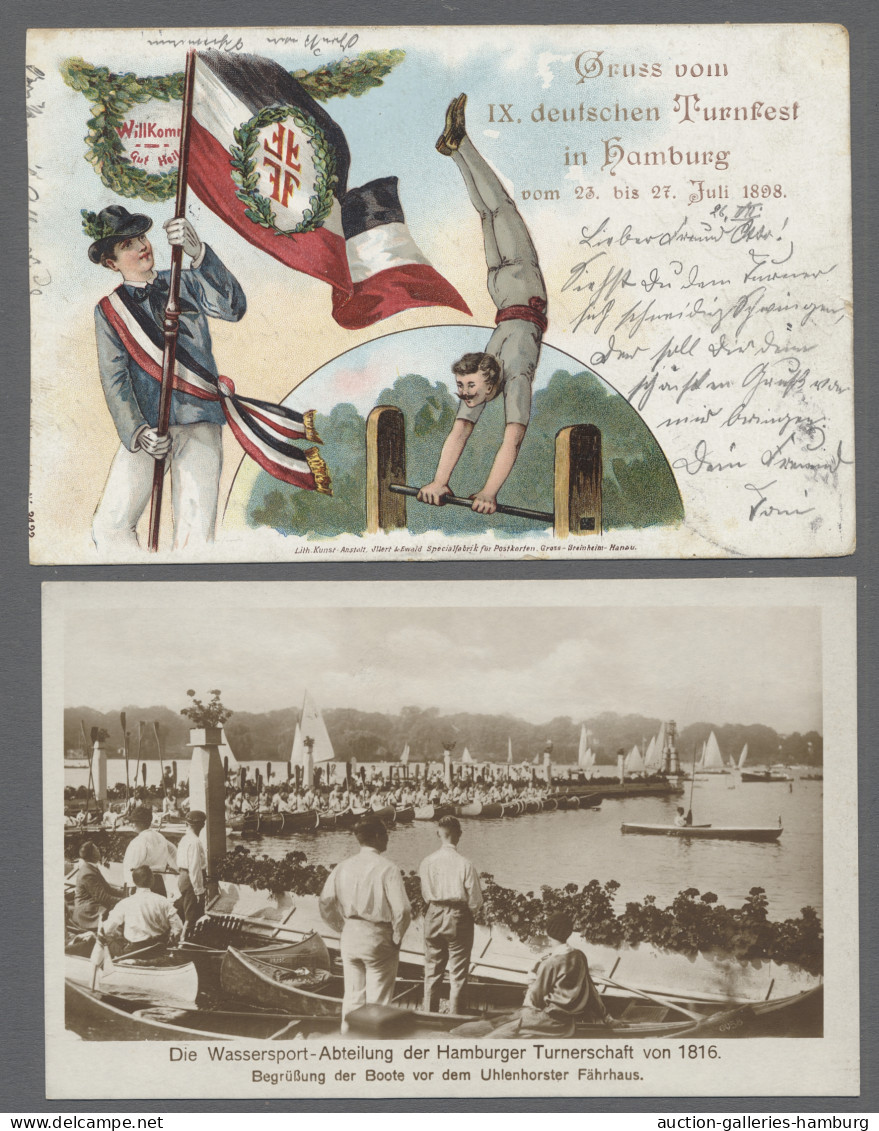 Gruss vom
IX. deutschen Turnfest
in Hamburg
vom 23. bis 27. Juli 1898.
Willkomm
Gut Heil
26. VII.
Lieber Freund Otto!
Siehst Du dem Turner
sich schneidig schwingen,
Der soll Dir den
schönsten Gruß von
mir bringen.
Dein Freund
Toni
Lith. Kunst-Anstalt, Illert & Ewald Specialfabrik für Postkarten, Gross-Steinheim-Hanau.
Die Wassersport-Abteilung der Hamburger Turnerschaft von 1816.
Begrüßung der Boote vor dem Uhlenhorster Fährhaus.
auction-galleries-hamburg
www.delcampe.net